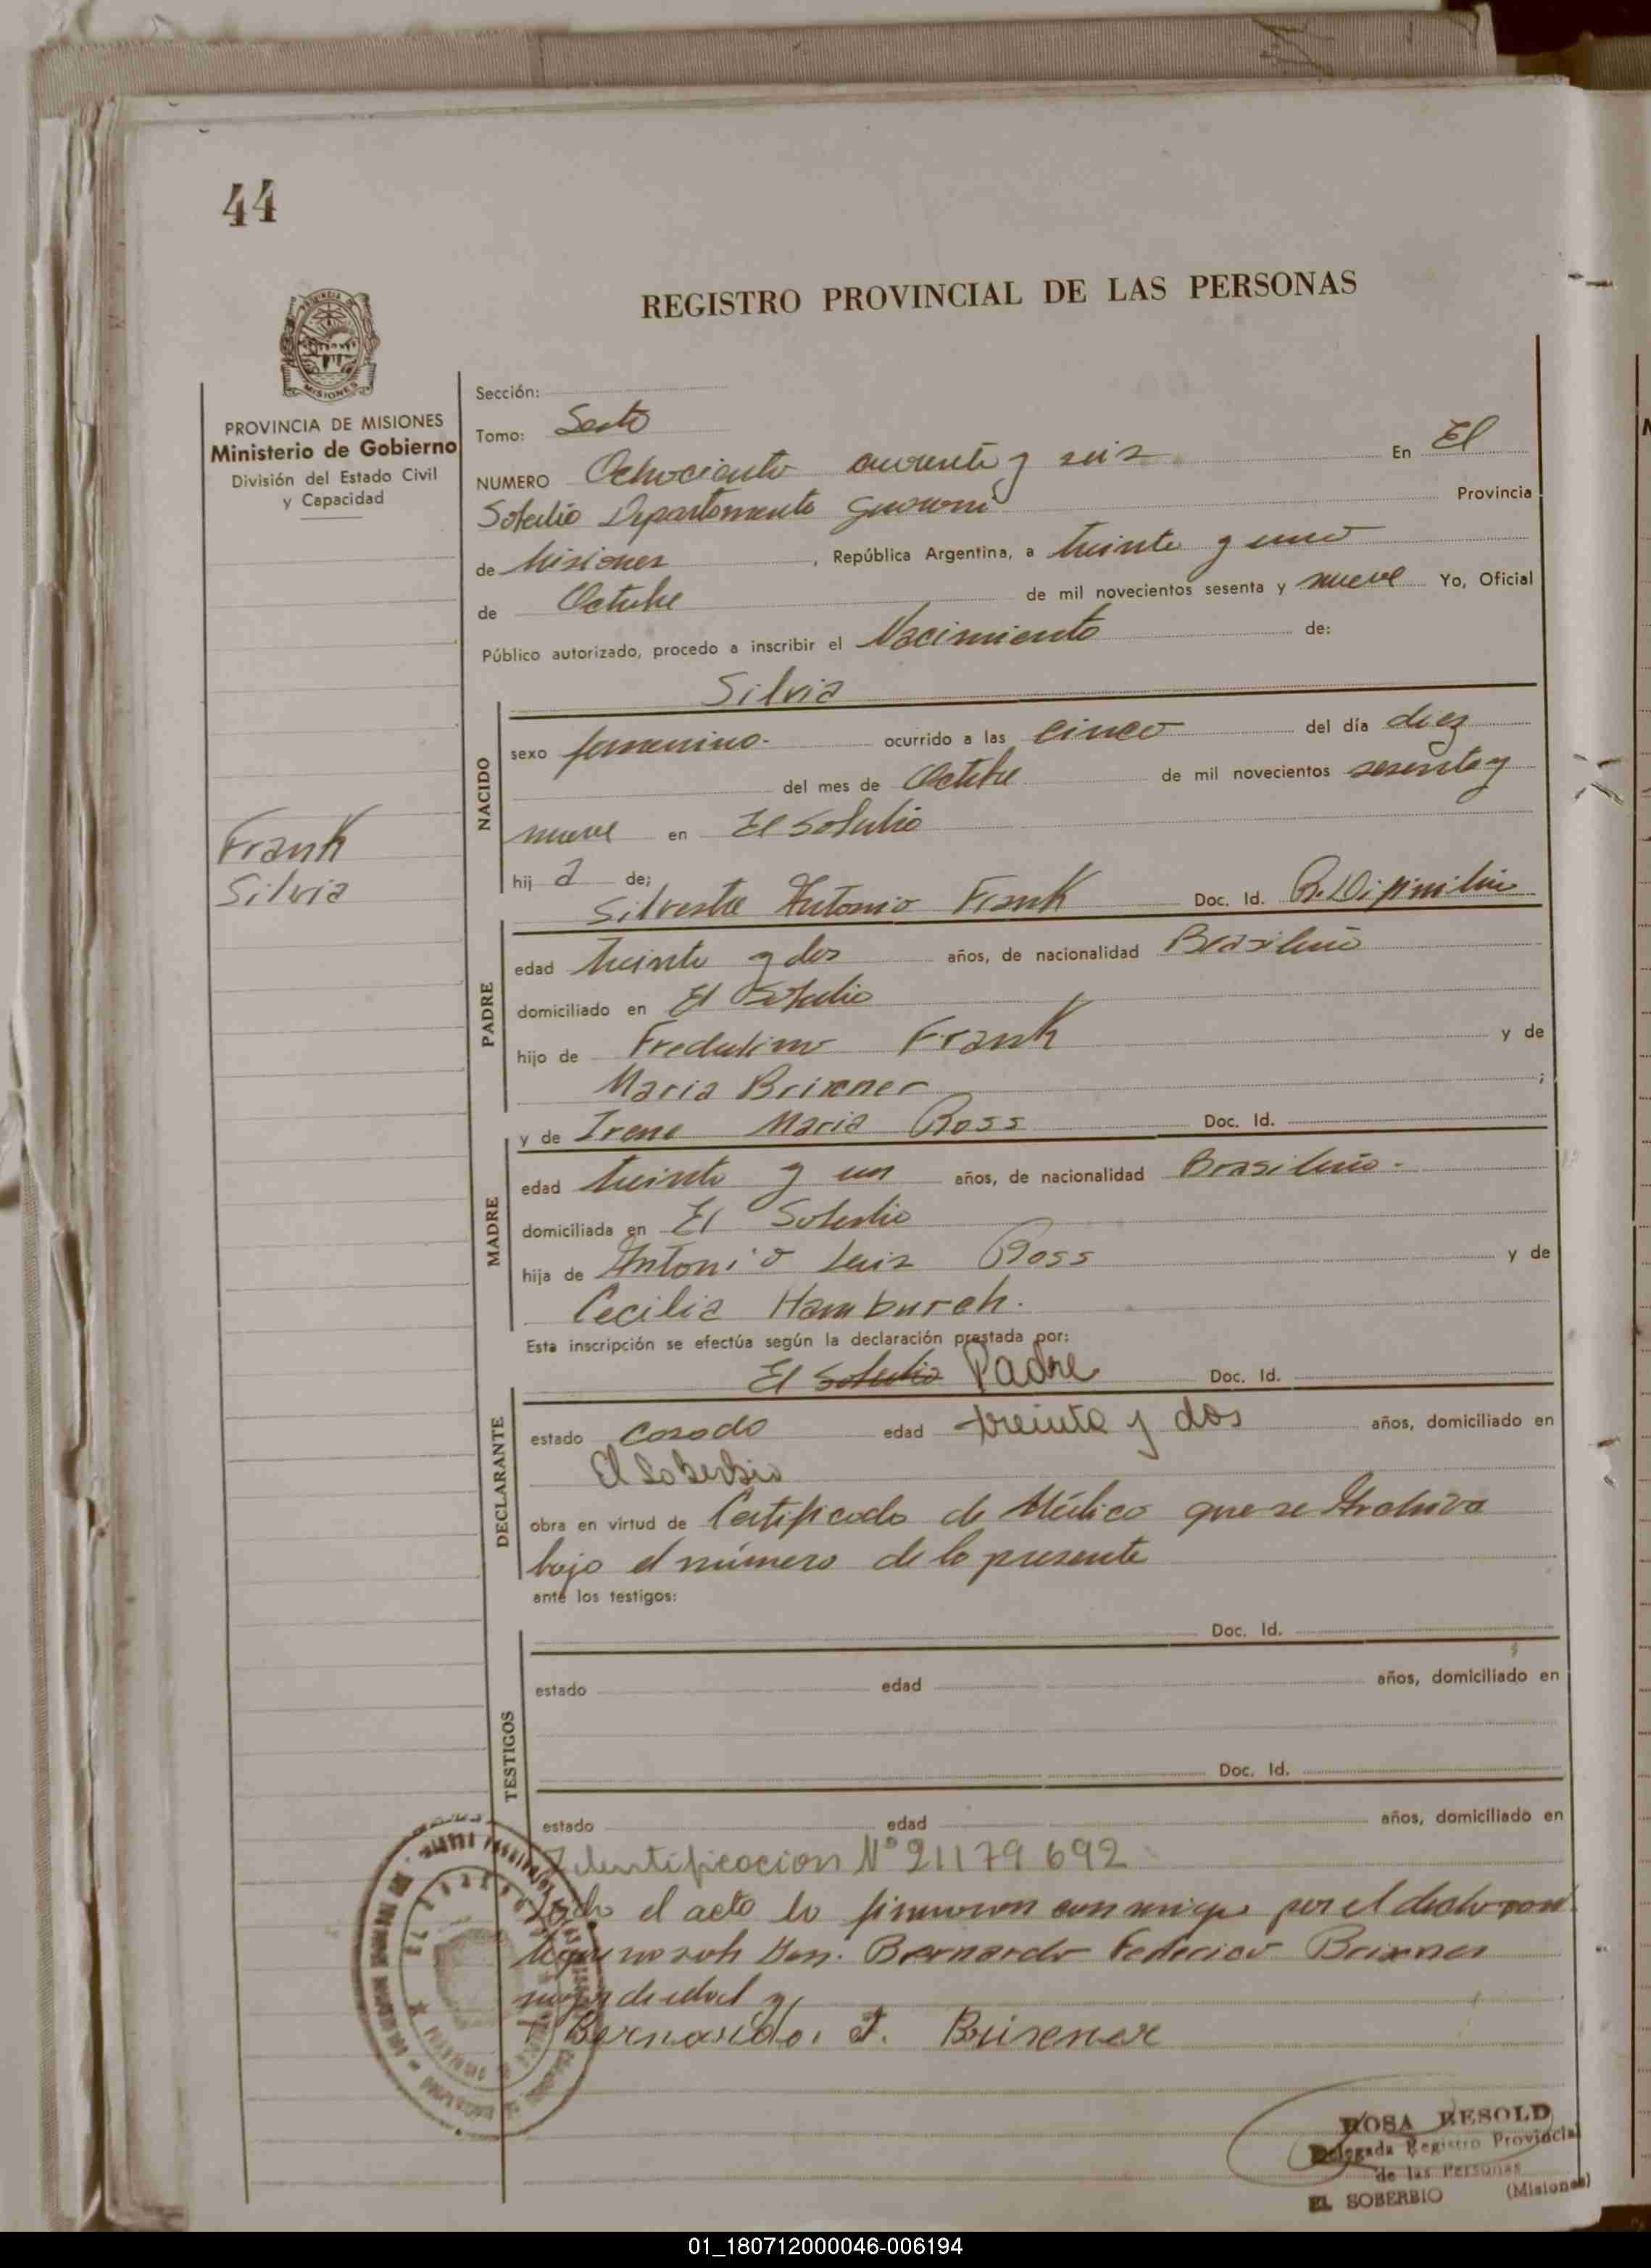 44
REGISTRO PROVINCIAL DE LAS PERSONAS
MISIONES
PROVINCIA DE MISIONES
Ministerio de Gobierno
División del Estado Civil
y Capacidad
Sección:
Tomo: Sexto
NUMERO Ochociento cuarenta y seis En El
Soberbio Departamento Guaraní Provincia
de Misiones, República Argentina, a treinta y uno
de Octubre de mil novecientos sesenta y nueve Yo, Oficial
Público autorizado, procedo a inscribir el Nacimiento de:
Silvia
NACIDO
sexo femenino. ocurrido a las cinco del día diez
del mes de Octubre de mil novecientos sesenta y
nueve en El Soberbio
Frank
Silvia
hija de;
Silvestre Antonio Frank Doc. Id.
PADRE
edad treinta y dos años, de nacionalidad Brasileño
domiciliado en El Soberbio
hijo de Fredulino Frank y de
Maria Brixner ;
y de Irene Maria Ross Doc. Id.
MADRE
edad treinta y un años, de nacionalidad Brasileño.
domiciliada en El Soberbio
hija de Antonio Luis Ross y de
Cecilia Hamburch.
Esta inscripción se efectúa según la declaración prestada por:
El Soberbio Padre Doc. Id.
DECLARANTE
estado casado edad treinta y dos años, domiciliado en
El Soberbio
obra en virtud de Certificado de Médico que se Archiva
bajo el número de la presente
ante los testigos:
Doc. Id.
TESTIGOS
estado edad años, domiciliado en
Doc. Id.
estado edad años, domiciliado en
Identificacion Nº 21179692
el acto lo firmaron conmigo por el
Don. Bernardo Federico Brixner
mayor de edad y
Bernardo. F. Brixner
ROSA RESOLD
Delegada Registro Provincial
de las Personas
EL SOBERBIO (Misiones)
01_180712000046-006194